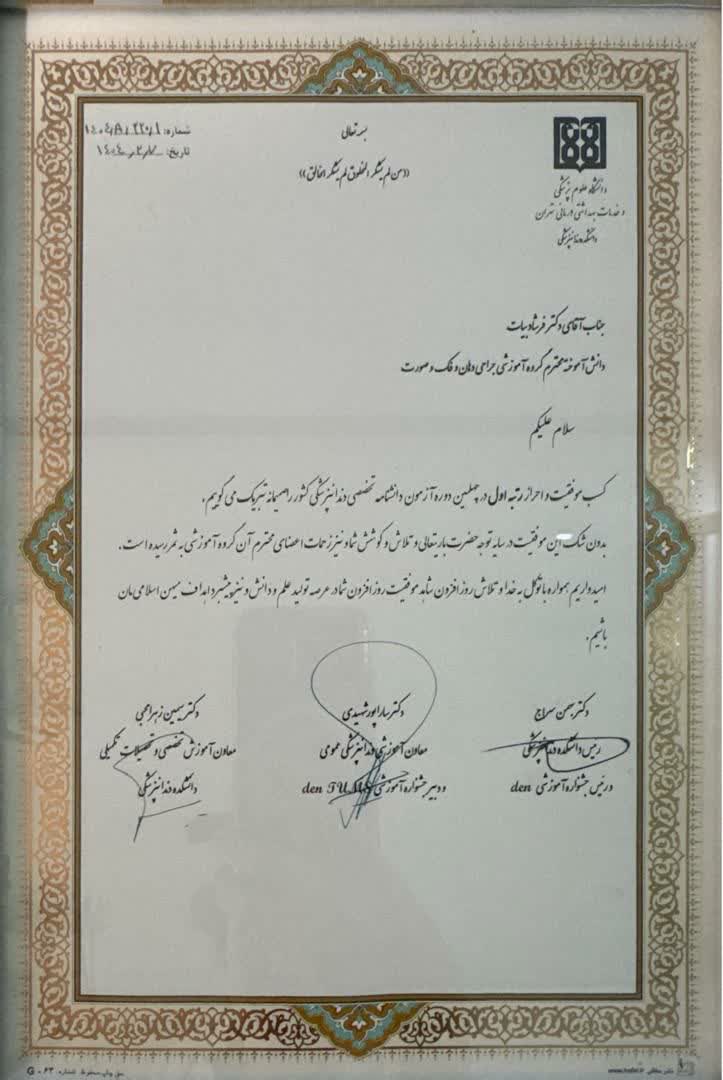 بسمه تعالی
«من لم یشکر المخلوق لم یشکر الخالق»
شماره:
تاریخ:
دانشگاه علوم پزشکی
و خدمات بهداشتی درمانی تهران
دانشکده دندانپزشکی
جناب آقای دکتر فرشاد بیات
دانش آموخته محترم گروه آموزشی جراحی دهان و فک و صورت
سلام علیکم
کسب موفقیت و احراز رتبه اول در چهلمین دوره آزمون دانشنامه تخصصی دندانپزشکی کشور را صمیمانه تبریک می گوییم.
بدون شک این موفقیت در سایه توجه حضرت باریتعالی و تلاش و کوشش شما و نیز زحمات اعضای محترم آن گروه آموزشی به ثمر رسیده است.
امیدواریم همواره با توکل به خدا و تلاش روز افزون شاهد موفقیت روز افزون شما در عرصه تولید علم و دانش و نیز پیشبرد اهداف میهن اسلامی مان
باشیم.
دکتر بهمن سراج
رییس دانشکده دندانپزشکی
و رئیس جشنواره آموزشی den
دکتر سارا پورشهیدی
معاون آموزشی دندانپزشکی عمومی
و دبیر جشنواره آموزشی den TUMS
دکتر سیمین زهرا محبی
معاون آموزش تخصصی و تحصیلات تکمیلی
دانشکده دندانپزشکی
G - ۶۳
حق چاپ محفوظ شماره: